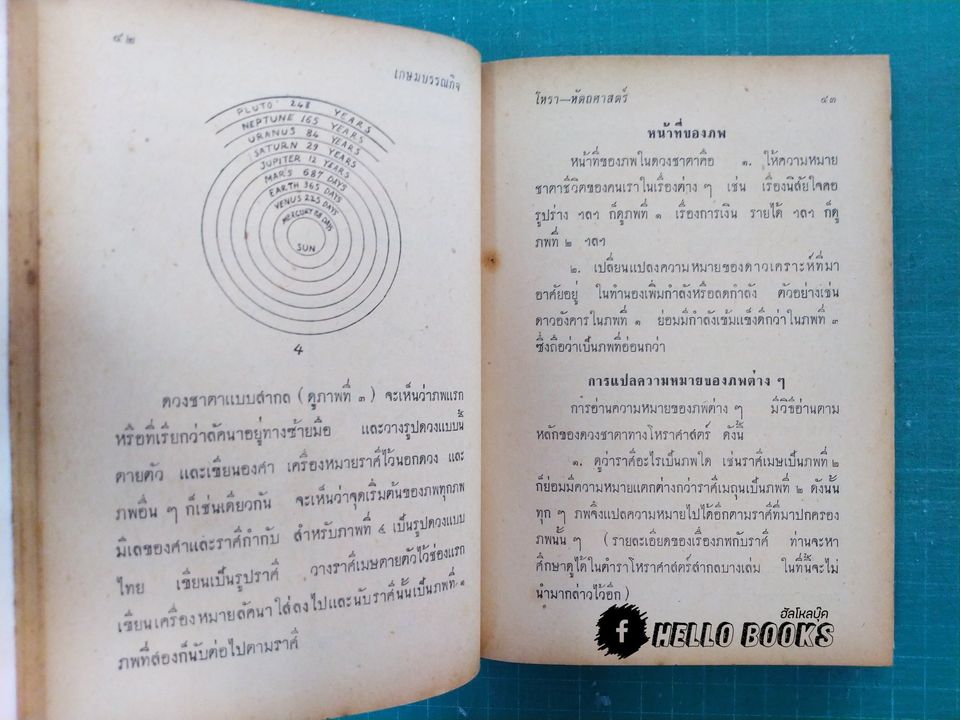 ๔๒
เกษมบรรณกิจ
PLUTO 248 YEARS
NEPTUNE 165 YEARS
URANUS 84 YEARS
SATURN 29 YEARS
JUPITER 12 YEARS
MARS 687 DAYS
EARTH 365 DAYS
VENUS 225 DAYS
MERCURY 88 DAYS
SUN
4
ดวงชาตาแบบสากล (ดูภาพที่ ๓) จะเห็นว่าภพแรก
หรือที่เรียกว่าลัคนาอยู่ทางซ้ายมือ และวางรูปดวงแบบนี้
ตายตัว และเขียนองศา เครื่องหมายราศีไว้นอกดวง และ
ภพอื่น ๆ ก็เช่นเดียวกัน จะเห็นว่าจุดเริ่มต้นของภพทุกภพ
มีเลของศาและราศีกำกับ สำหรับภาพที่ ๔ เป็นรูปดวงแบบ
ไทย เขียนเป็นรูปราศี วางราศีเมษตายตัวไว้ช่องแรก
เขียนเครื่องหมายลัคนาใส่ลงไปและนับราศีนั้นเป็นภพที่ ๑
ภพที่สองก็นับต่อไปตามราศี
โหรา—หัตถศาสตร์
๔๓
หน้าที่ของภพ
หน้าที่ของภพในดวงชาตาคือ ๑. ให้ความหมาย
ชาตาชีวิตของคนเราในเรื่องต่าง ๆ เช่น เรื่องนิสัยใจคอ
รูปร่าง ฯลฯ ก็ดูภพที่ ๑ เรื่องการเงิน รายได้ ฯลฯ ก็ดู
ภพที่ ๒ ฯลฯ
๒. เปลี่ยนแปลงความหมายของดาวเคราะห์ที่มา
อาศัยอยู่ ในทำนองเพิ่มกำลังหรือลดกำลัง ตัวอย่างเช่น
ดาวอังคารในภพที่ ๑ ย่อมมีกำลังเข้มแข็งดีกว่าในภพที่ ๓
ซึ่งถือว่าเป็นภพที่อ่อนกว่า
การแปลความหมายของภพต่าง ๆ
การอ่านความหมายของภพต่าง ๆ มีวิธีอ่านตาม
หลักของดวงชาตาทางโหราศาสตร์ ดังนี้
๑. ดูว่าราศีอะไรเป็นภพใด เช่นราศีเมษเป็นภพที่ ๒
ก็ย่อมมีความหมายแตกต่างกว่าราศีเมถุนเป็นภพที่ ๒ ดังนั้น
ทุก ๆ ภพจึงแปลความหมายไปได้อีกตามราศีที่มาปกครอง
ภพนั้น ๆ (รายละเอียดของเรื่องภพกับราศี ท่านจะหา
ศึกษาดูได้ในตำราโหราศาสตร์สากลบางเล่ม ในที่นี้จะไม่
นำมากล่าวไว้อีก)
ฮัลโหลบุ๊ค
f HELLO BOOKS